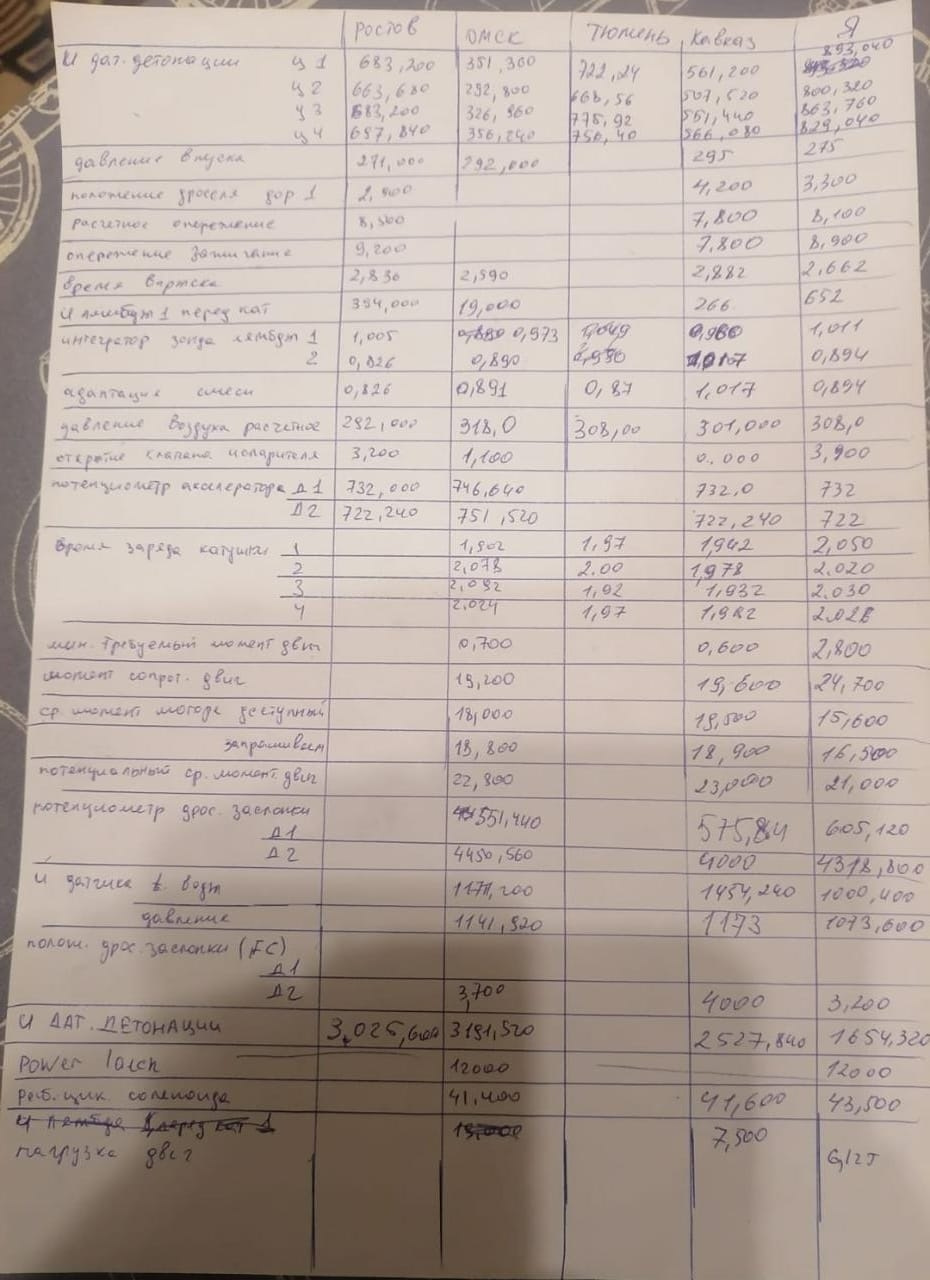 РОСТОВ ОМСК ТЮМЕНЬ Кавказ Я
893,040
U дат. детонации ц 1 683,200 351,360 722,24 561,200
ц 2 663,680 292,800 668,56 507,520 800,320
ц 3 683,200 326,960 775,92 551,440 863,760
ц 4 657,840 356,240 756,40 566,080 829,040
давление впуска 271,000 292,000 295 275
положение дроселя дор 1 2,900 4,200 3,300
расчетное опережение 8,300 7,800 8,100
опережение зажигание 9,200 7.800 8,900
время впрыска 2,836 2,590 2,882 2,662
U лямбды 1 перед кат 394,000 19,000 266 652
интегратор зонда лямбды 1 1,005 0,973 1,049 0,980 1,011
2 0,826 0,890 1,017 0,894
адаптация смеси 0,826 0,891 0,87 1,017 0,894
давление воздуха расчетное 292,000 318,0 308,00 301,000 308,0
открытие клапана испарителя 3,200 1,100 0.000 3,900
потенциометр акселератора Д1 732,000 746,640 732,0 732
Д2 722,240 751,520 722,240 722
время заряда катушки 1 1,902 1,97 1,942 2,050
2 2,078 2.00 1,978 2.020
3 2,092 1,92 1,932 2.030
4 2,024 1,97 1,982 2.028
мин. требуемый момент двиг 0,700 0,600 2,800
момент сопрот. двиг 19,200 19,600 24,700
ср. момент мотора доступный 18,000 19,500 15,600
запрашиваем 19,800 18,900 16,500
потенциальный ср. момент двиг 22,800 23,000 21,000
потенциометр дрос. заслонки
Д1 551,440 575,84 605,120
Д2 4450,560 4000 4318,800
U датчика t. воды 1171,200 1454,240 1000,400
давление 1141,920 1173 1073,600
полож. дрос. заслонки (EC)
Д1
Д2 3,700 4000 3,200
U ДАТ. ДЕТОНАЦИИ 3,025,600 3191,520 2527,840 1654,320
Power latch 12000 12000
раб. цик. соленоида 41,400 41,600 43,500
нагрузка двиг 7,500